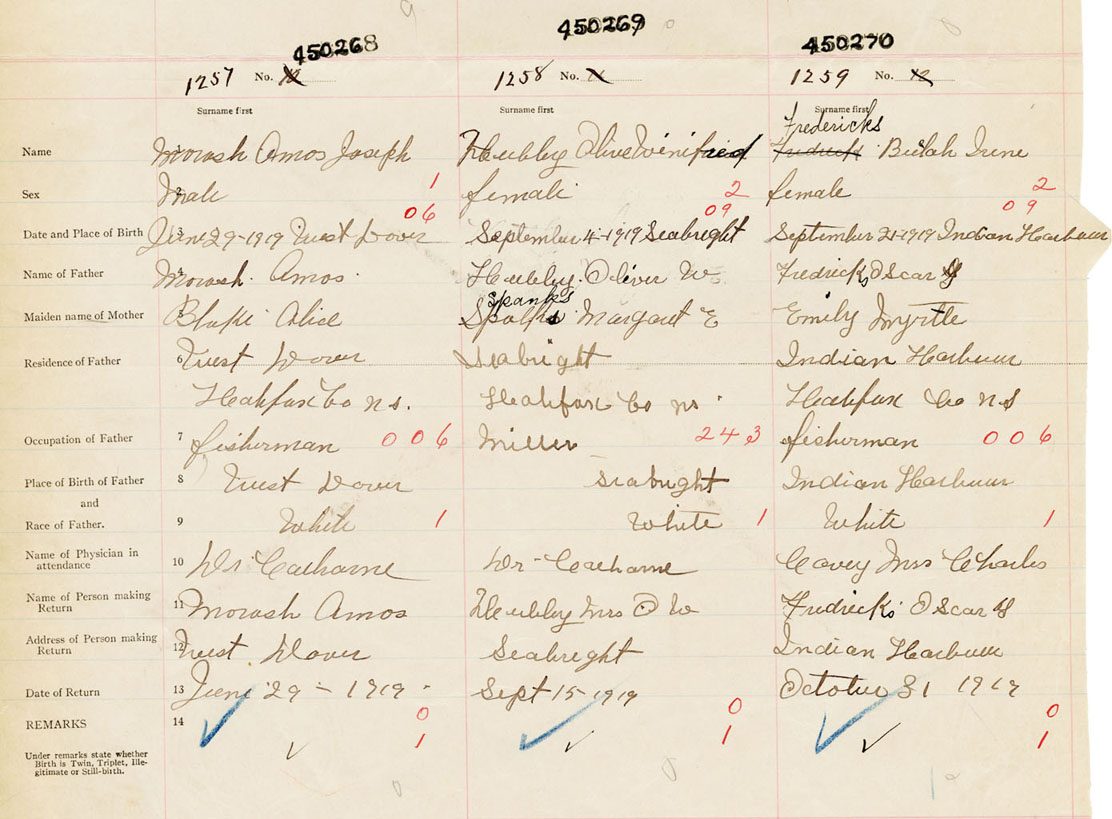 450268 450269 450270
1257 No. 1258 No. 1259 No.
Surname first Surname first Surname first
Fredericks
Name Morash Amos Joseph Hubley Olive Winifred Fredrick Bulah Irene
1 2 2
Sex 2 Male female female
06 09 09
Date and Place of Birth 3 June 29-1919 West Dover September 4-1919 Seabright September 21-1919 Indian Harbour
Name of Father 4 Morash Amos Hubley Oliver W Fredricks Oscar
Spanks
Maiden name of Mother 5 Blake Alice Margaret E Emily Myrtle
Residence of Father 6 West Dover Seabright Indian Harbour
Halifax Co N.S. Halifax Co NS Halifax Co N S
Occupation of Father 7 fisherman 006 Miller 243 fisherman 006
Place of Birth of Father 8 West Dover Seabright Indian Harbour
and
Race of Father. 9 White 1 White 1 White 1
Name of Physician in
attendance 10 Dr Dr Covey Mrs Charles
Name of Person making
Return 11 Morash Amos Hubley Mrs O W Fredricks Oscar
Address of Person making
Return 12 West Dover Seabright Indian Harbour
Date of Return 13 June 29-1919- Sept 15 1919 October 31 1919
REMARKS 14 0 0 0
1 1 1
Under remarks state whether
Birth is Twin, Triplet, Ille-
gitimate or Still-birth.